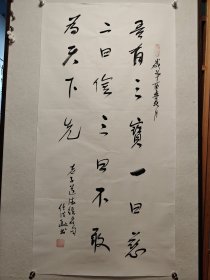 吾有三寶一曰慈
二曰儉三曰不敢
為天下先
老子道德經句
任法融书